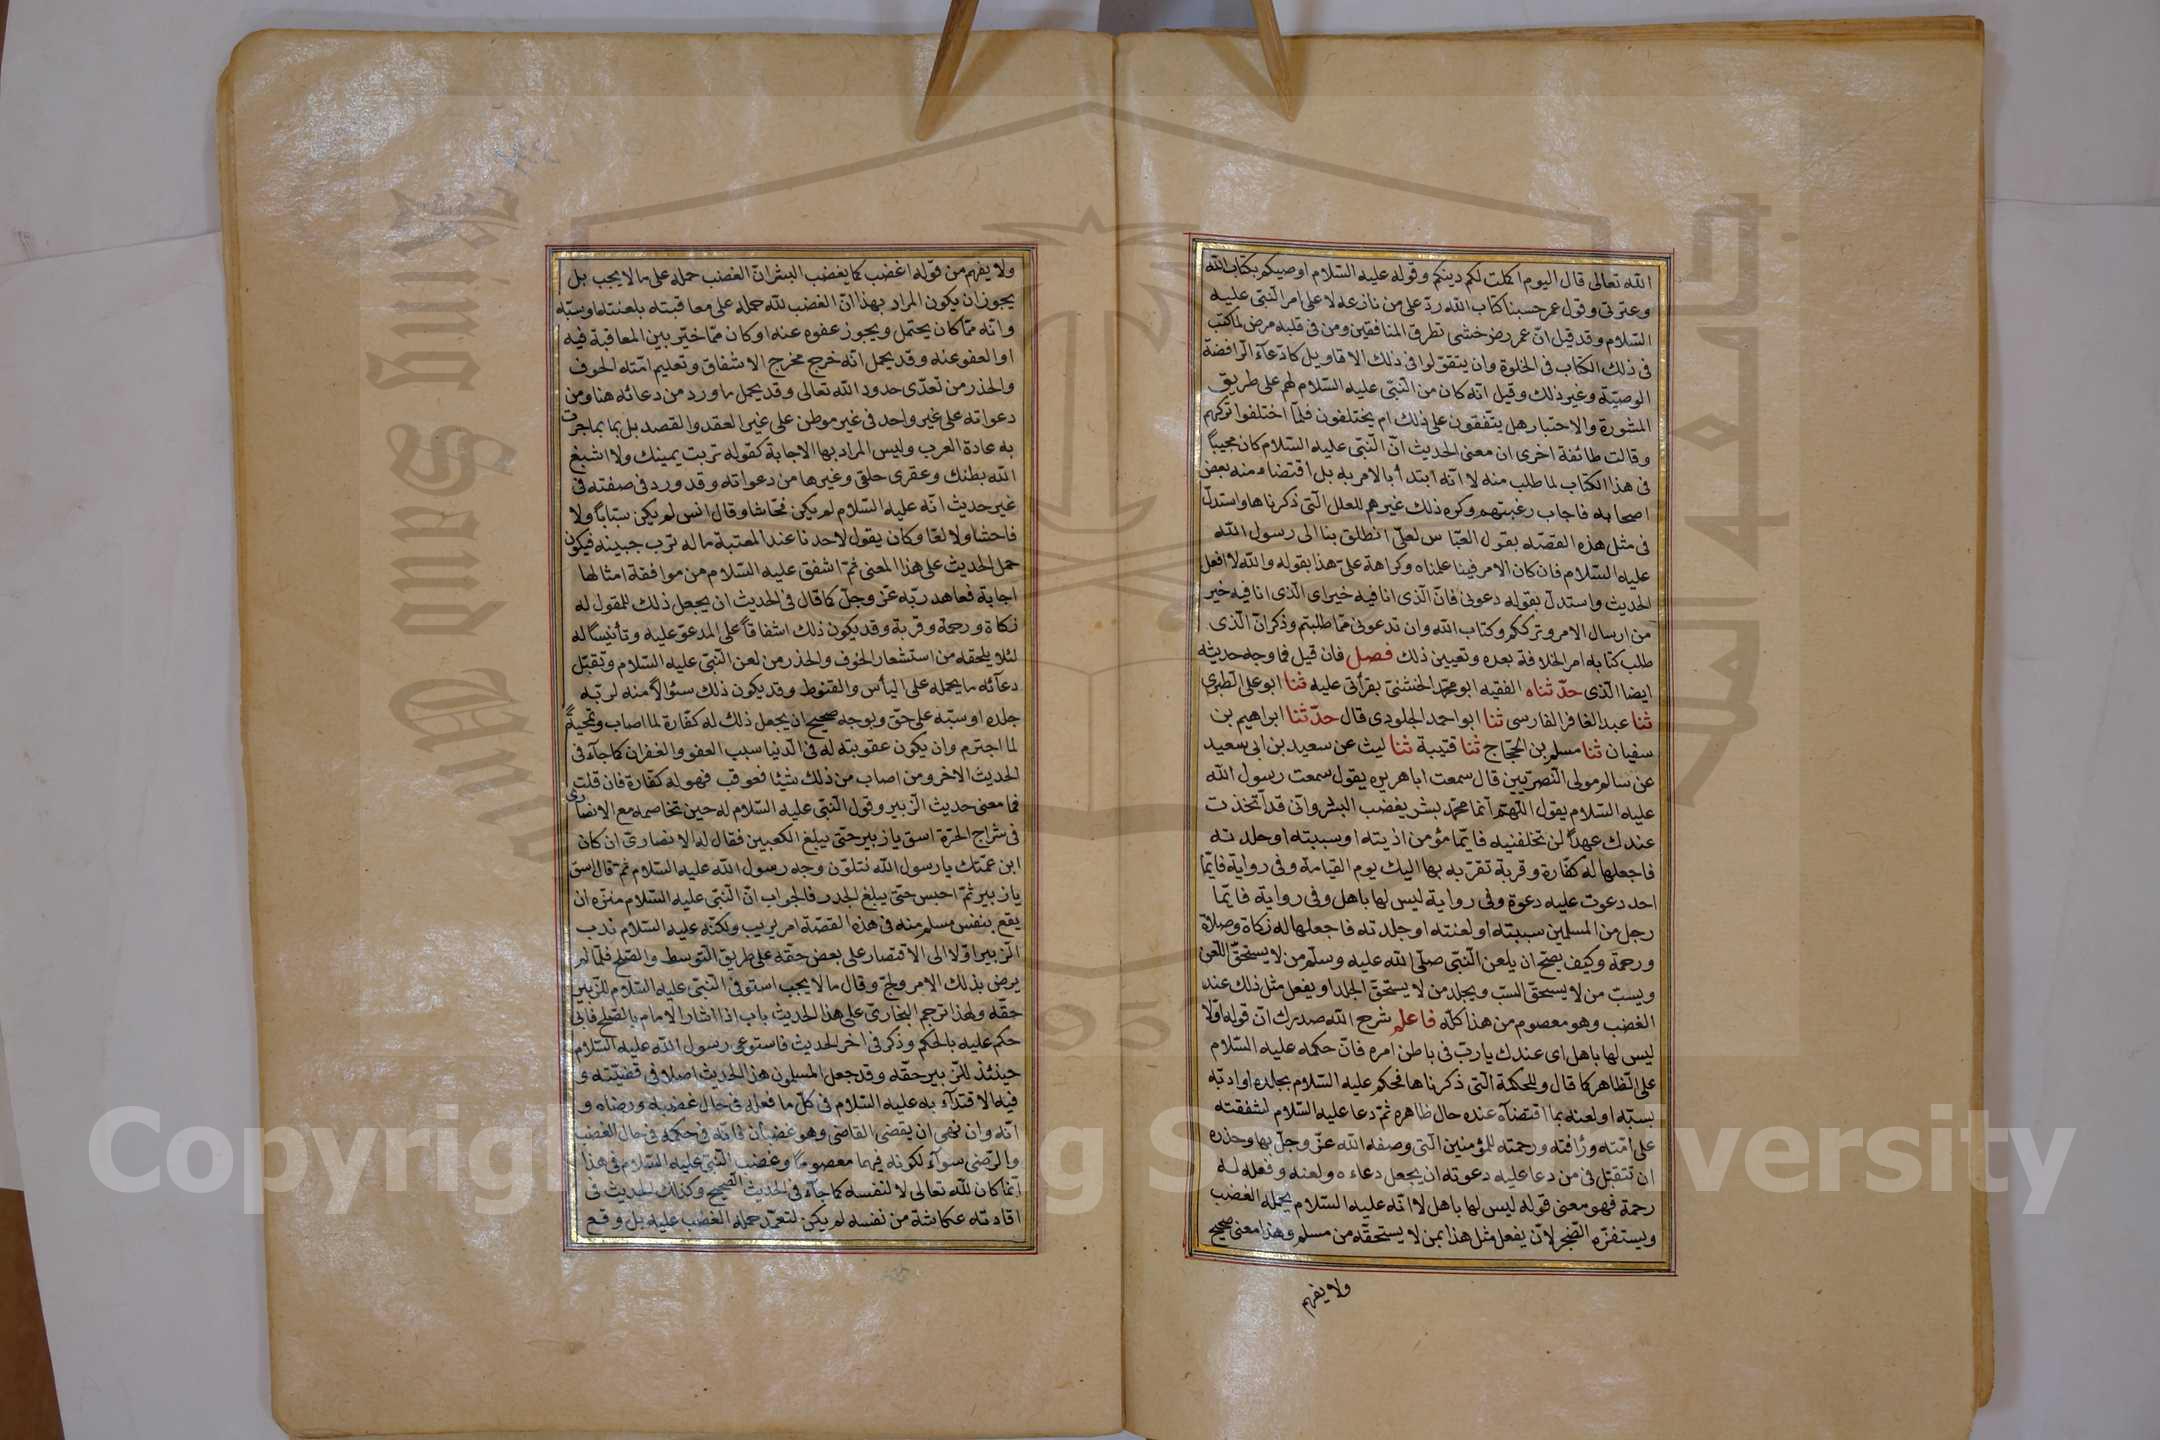 الله تعالى قال اليوم اكملت لكم دينكم وقوله عليه السّلام اوصيكم بكتاب الله
وعترتى وقول عمر حسبنا كتاب الله ردّ على من نازعه لا على امر النّبى عليه
السّلام وقد قيل انّ عمر رض خشى تطرق المنافقين ومن فى قلبه مرض لما كتب
فى ذلك الكتاب فى الخلوة وان يتقوّلوا فى ذلك الاقاويل كادّعآء الرّافضة
الوصيّة وغير ذلك وقيل انّه كان من النّبى عليه السّلام لهم على طريق
المشورة والاختبار هل يتّفقون على ذلك ام يختلفون فلمّا اختلفوا تركهم
وقالت طائفة اخرى ان معنى الحديث انّ النّبى عليه السّلام كان مجيباً
فى هذا الكتاب لما طلب منه لا انّه ابتدأ بالامر به بل اقتضاه منه بعض
اصحابه فاجاب رغبتهم وكره ذلك غيرهم للعلل الّتى ذكرناها واستدلّ
فى مثل هذه القصّه بقول العبّاس لعلىّ انطلق بنا الى رسول الله
عليه السّلام فان كان الامر فينا علمناه وكراهة علىّ هذا بقوله والله لا افعل
الحديث واستدلّ بقوله دعونى فانّ الّذى انا فيه خير اى الّذى انا فيه خير
من ارسال الامر وترككم وكتاب الله وان تدعونى ممّا طلبتم وذكر انّ الّذى
طلب كتابه امر الخلافة بعده وتعيين ذلك فصل فان قيل فما وجه حديثه
ايضا الّذى حدّثناه الفقيه ابو محمّد الخشنىّ بقرأتى عليه ثنا ابو على الطبرى
ثنا عبد الغافر الفارسى ثنا ابو احمد الجلودى قال حدّثنا ابراهيم بن
سفيان ثنا مسلم بن الحجّاج ثنا قتيبة ثنا ليث عن سعيد بن ابى سعيد
عن سالم مولى النّصريّين قال سمعت ابا هريره يقول سمعت رسول الله
عليه السّلام يقول اللّهمّ انّما محمّد بشر يغضب البشر وانّى قد اتّخذت
عندك عهداً لن تخلفنيه فايّما مؤمن اذيته او سببته او جلدته
فاجعلها له كفّارة وقربة تقرّبه بها اليك يوم القيامة وفى رواية فايّما
احد دعوت عليه دعوة وفى رواية ليس لها باهل وفى رواية فايّما
رجل من المسلمين سببته او لعنته او جلدته فاجعلها له زكاة وصلاة
ورحمة وكيف يصحّ ان يلعن النّبى صلّى الله عليه وسلّم من لا يستحقّ اللّعن
ويسبّ من لا يستحقّ السّب ويجلد من لا يستحقّ الجلد او يفعل مثل ذلك عند
الغضب وهو معصوم من هذا كلّه فاعلم شرح الله صدرك انّ قوله اوّلا
ليس لها باهل اى عندك يا ربّ فى باطن امره فانّ حكمه عليه السّلام
على الظّاهر كما قال وللحكمة الّتى ذكرناها فحكم عليه السّلام بجلده او ادبّه
بسبّه او لعنه بما اقتضآه عنده حال ظاهره ثمّ دعا عليه السّلام لشفقته
على امّته ورأفته ورحمته للمؤمنين الّتى وصفه الله عزّ وجلّ بها وحذره
ان تتقبّل فى من دعا عليه دعوته ان يجعل دعاءه ولعنه وفعله له
رحمة فهو معنى قوله ليس لها باهل لا انّه عليه السّلام يحمله الغضب
ويستفزّه الضّجر لانّ يفعل مثل هذا بمن لا يستحقّه من مسلم وهذا معنى صحيح
ولا يفهم
ولا يفهم من قوله اغضب كما يغضب البشر انّ الغضب حمله على ما لا يجب بل
يجوز ان يكون المراد بهذا انّ الغضب لله حمله على معاقبته بلعنته او سبّه
وانّه ممّا كان يحتمل ويجوز عفوه عنه او كان ممّا خيّر بين المعاقبة فيه
او العفو عنه وقد يحمل انّه خرج مخرج الاشفاق وتعليم امّته الخوف
والحذر من تعدّى حدود الله تعالى وقد يحمل ما ورد من دعائه هنا ومن
دعواته على غير واحد فى غير موطن على غير العقد والقصد بل بما بما جرت
به عادة العرب وليس المراد بها الاجابة كقوله تربت يمينك ولا اشبع
الله بطنك وعقرى حلقى وغيرها من دعواته وقد ورد فى صفته فى
غير حديث انّه عليه السّلام لم يكن فحّاشا وقال انس لم يكن سبّاباً ولا
فاحشا ولا لعّانا وكان يقول لاحدنا عند المعتبة ما له ترب جبينه فيكون
حمل الحديث على هذا المعنى ثمّ اشفق عليه السّلام من موافقة امثالها
اجابة فعاهد ربّه عزّ وجلّ كما قال فى الحديث ان يجعل ذلك للمقول له
زكاة ورحمة وقربة وقد يكون ذلك اشفاقاً على المدعوّ عليه وتأنيساً له
لئلا يلحقه من استشعار الخوف والحذر من لعن النّبى عليه السّلام وتقبّل
دعآئه ما يحمله على اليأس والقنوط وقد يكون ذلك سئوالاً منه لربّه
جلده او سبّه على حقّ وبوجه صحيح ان يجعل ذلك له كفّارة لما اصاب وتمحيةً
لما اجترم وان يكون عقوبته له فى الدّنيا سبب العفو والغفران كما جآء فى
الحديث الاخر ومن اصاب من ذلك شيئا فعوقب فهو له كفّارة فان قلت
فما معنى حديث الزّبير وقول النّبى عليه السّلام له حين تخاصمه مع الانصارى
فى شراج الحرّة اسق يا زبير حتّى يبلغ الكعبين فقال له الانصارىّ ان كان
ابن عمّتك يا رسول الله فتلوّن وجه رسول الله عليه السّلام ثمّ قال اسق
يا زبير ثمّ احبس حتّى يبلغ الجدر فالجواب انّ النّبى عليه السّلام منزّه ان
يقع بنفس مسلم منه فى هذه القصّة امر يريب ولكنّه عليه السّلام ندب
الزّبير اوّلا الى الاقتصار على بعض حقّه على طريق التّوسط والصّلح فلمّا لم
يرض بذلك الامر ولجّ وقال ما لا يجب استوفى النّبى عليه السّلام للزّبير
حقّه ولهذا ترجم البخارىّ على هذا الحديث باب اذا اشار الامام بالصّلح فابى
حكم عليه بالحكم وذكر فى اخر الحديث فاستوعى رسول الله عليه السّلام
حينئذ للزّبير حقّه وقد جعل المسلمون هذا الحديث اصلا فى قضيّته و
فيه الاقتدآء به عليه السّلام فى كلّ ما فعله فى حال غضبه ورضاه و
انّه وان نهى ان يقضى القاضى وهو غضبان فانّه فى حكمه فى حال الغضب
والرّضى سوآء لكونه فيهما معصوما وغضب النّبى عليه السّلام فى هذا
انّما كان لله تعالى لا لنفسه كما جآء فى الحديث الصّحيح وكذلك الحديث فى
اقادته عكاشة من نفسه لم يكن لتعمّد حمله الغضب عليه بل وقع
1957
Copyright © King Saud University